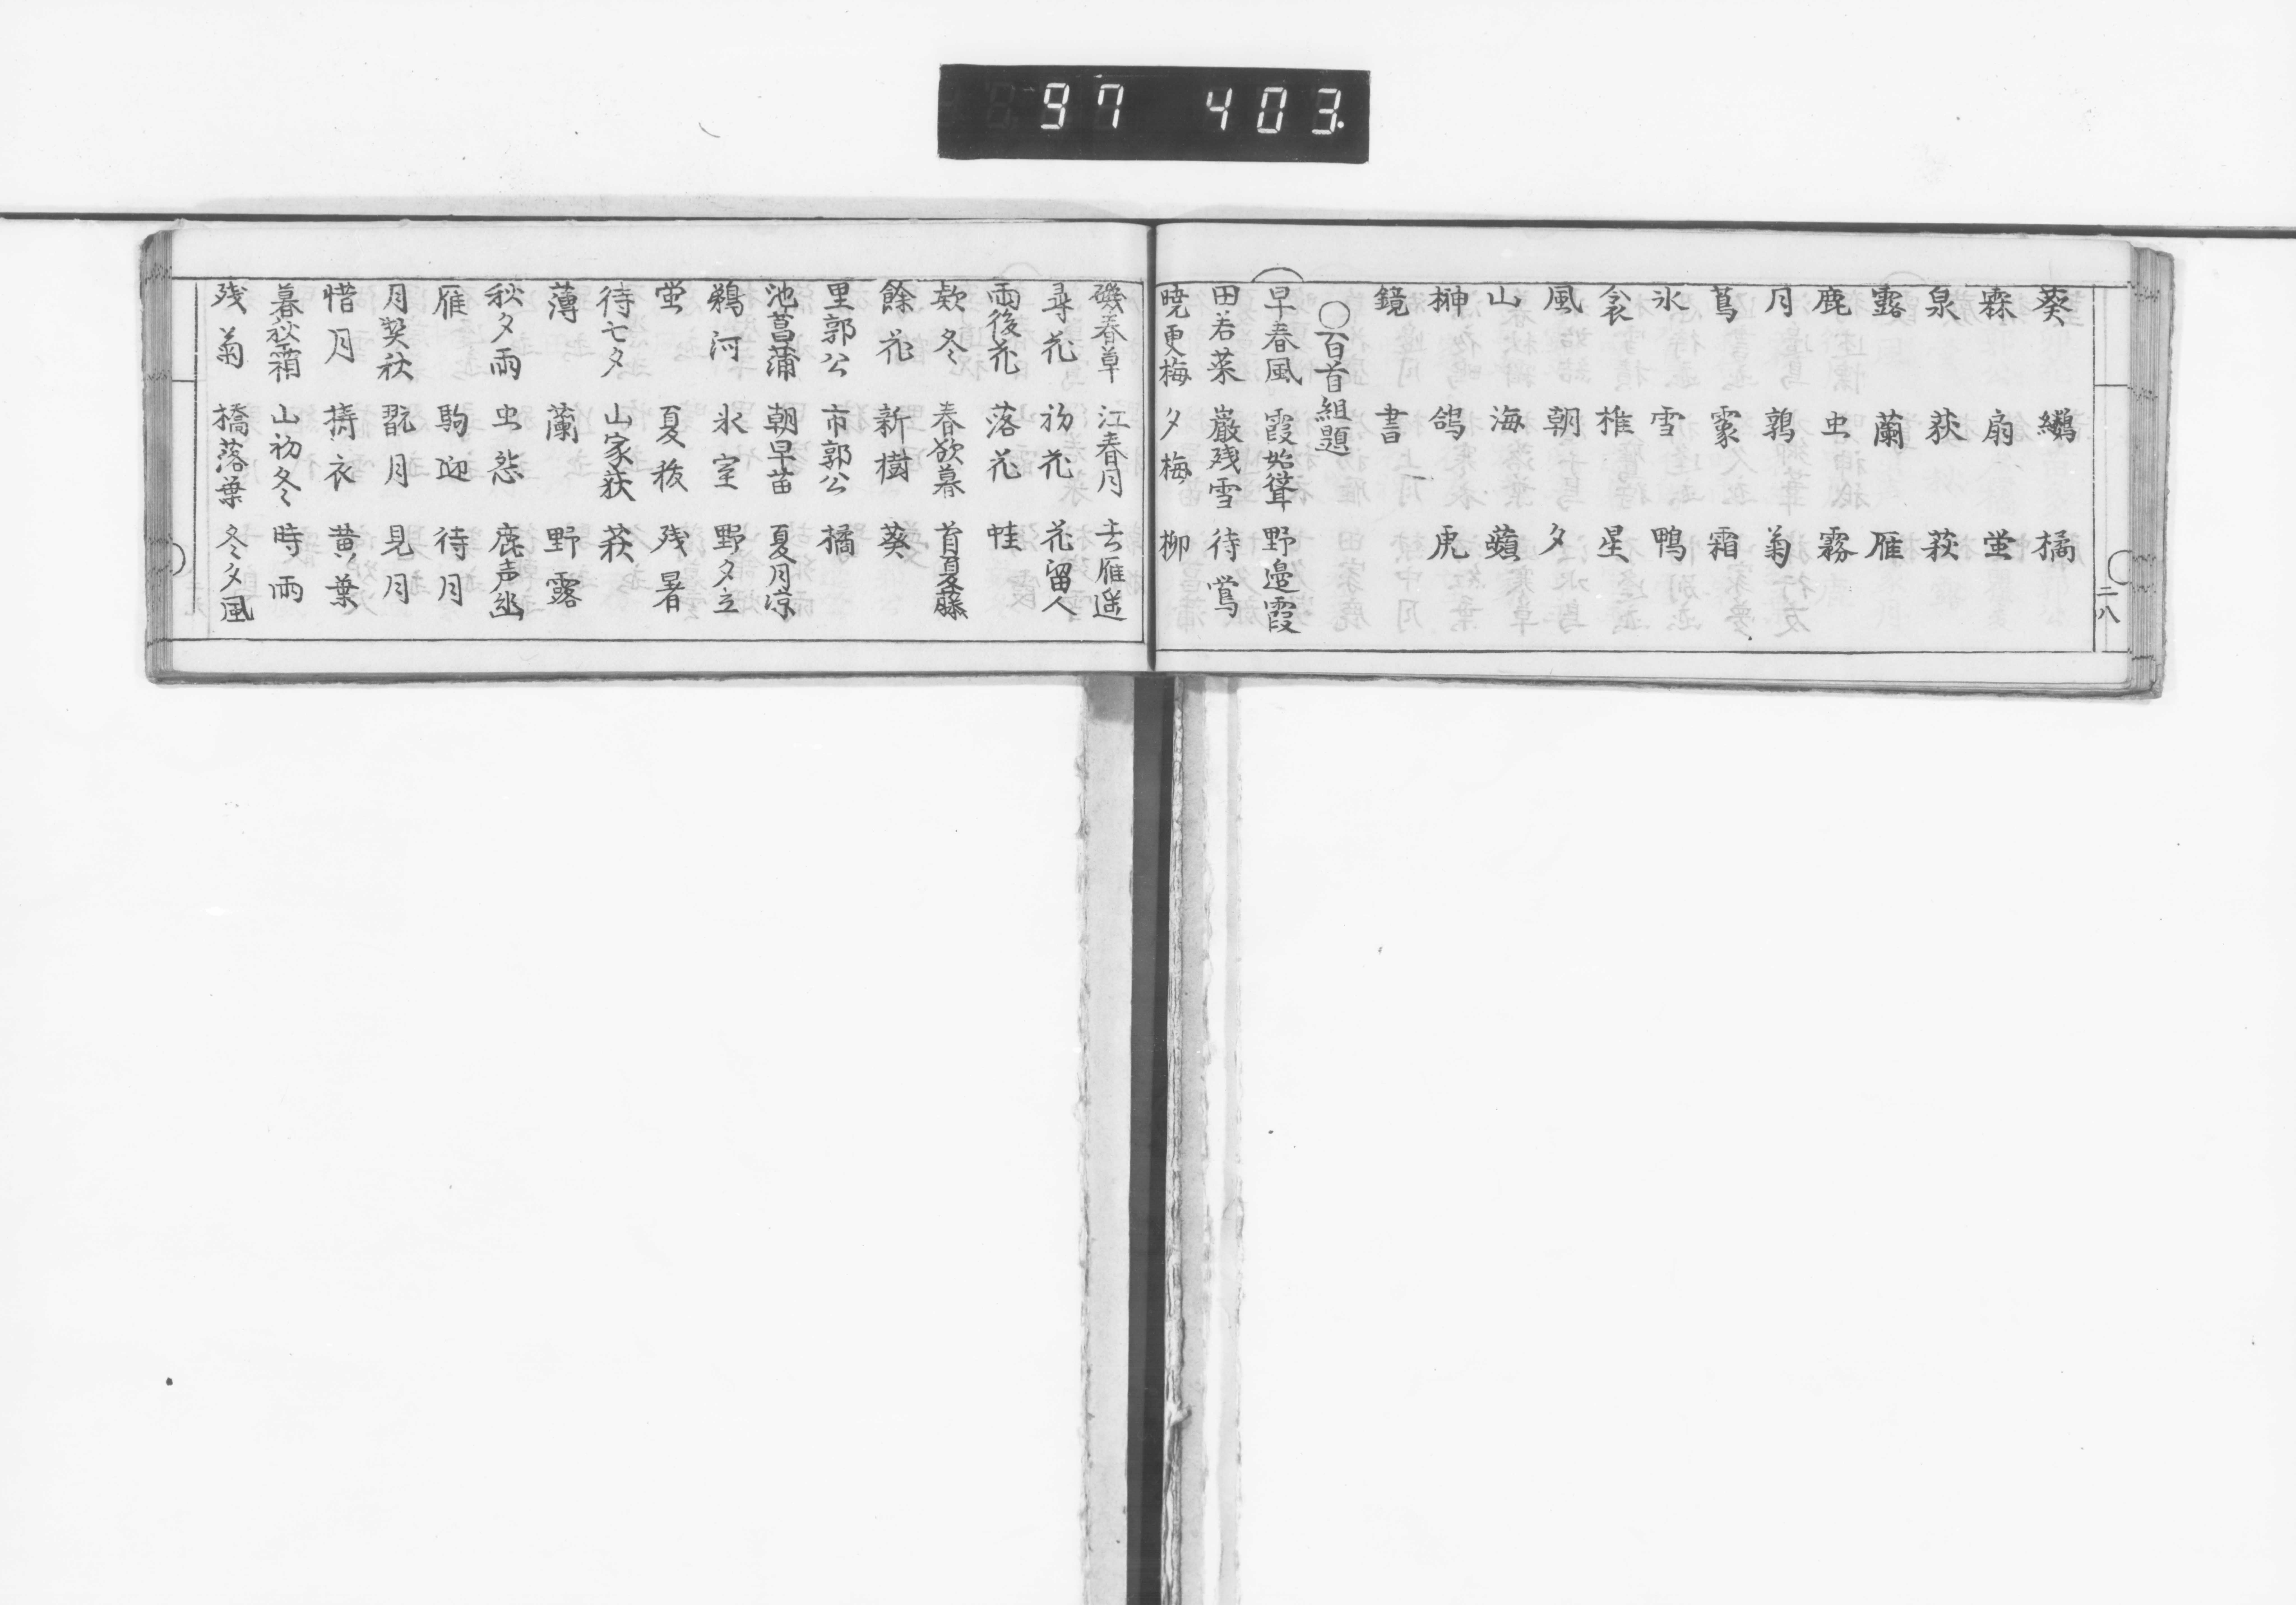 97 403.
葵 鸕 橘
森 扇 蛍
泉 荻 萩
露 蘭 雁
鹿 虫 霧
月 鶉 菊
蔦 霰 霜
氷 雪 鴨
衾 椎 星
風 朝 夕
山 海 蘋
榊 鴿 虎
鏡 書
○百首組題
早春風 霞始聳 野邉霞
田若菜 巌残雪 待鴬
暁更梅 夕梅 柳
二八
磯春草 江春月 去雁遥
尋花 初花 花留人
雨後花 落花 蛙
欵冬 春欲暮 首夏藤
餘花 新樹 葵
里郭公 市郭公 橘
池菖蒲 朝早苗 夏月凉
鵜河 氷室 野夕立
蛍 夏秡 残暑
待七夕 山家荻 萩
薄 蘭 野露
秋夕雨 虫怨 鹿声幽
雁 駒迎 待月
月契秋 翫月 見月
惜月 擣衣 黄葉
暮秋霜 山初冬 時雨
残菊 橋落葉 冬夕風